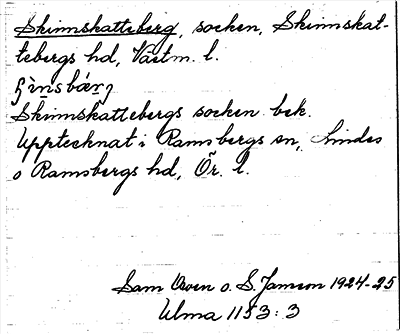 Skinnskatteberg, socken, Skinnskat-
tebergs hd, Västm. l.
Skinnskattebergs socken bek.
Upptecknat i Ramsbergs sn, Lindes
o Ramsbergs hd, Ör. l.
Sam Owen o. S. Janson 1924-25
Ulma 1153:3